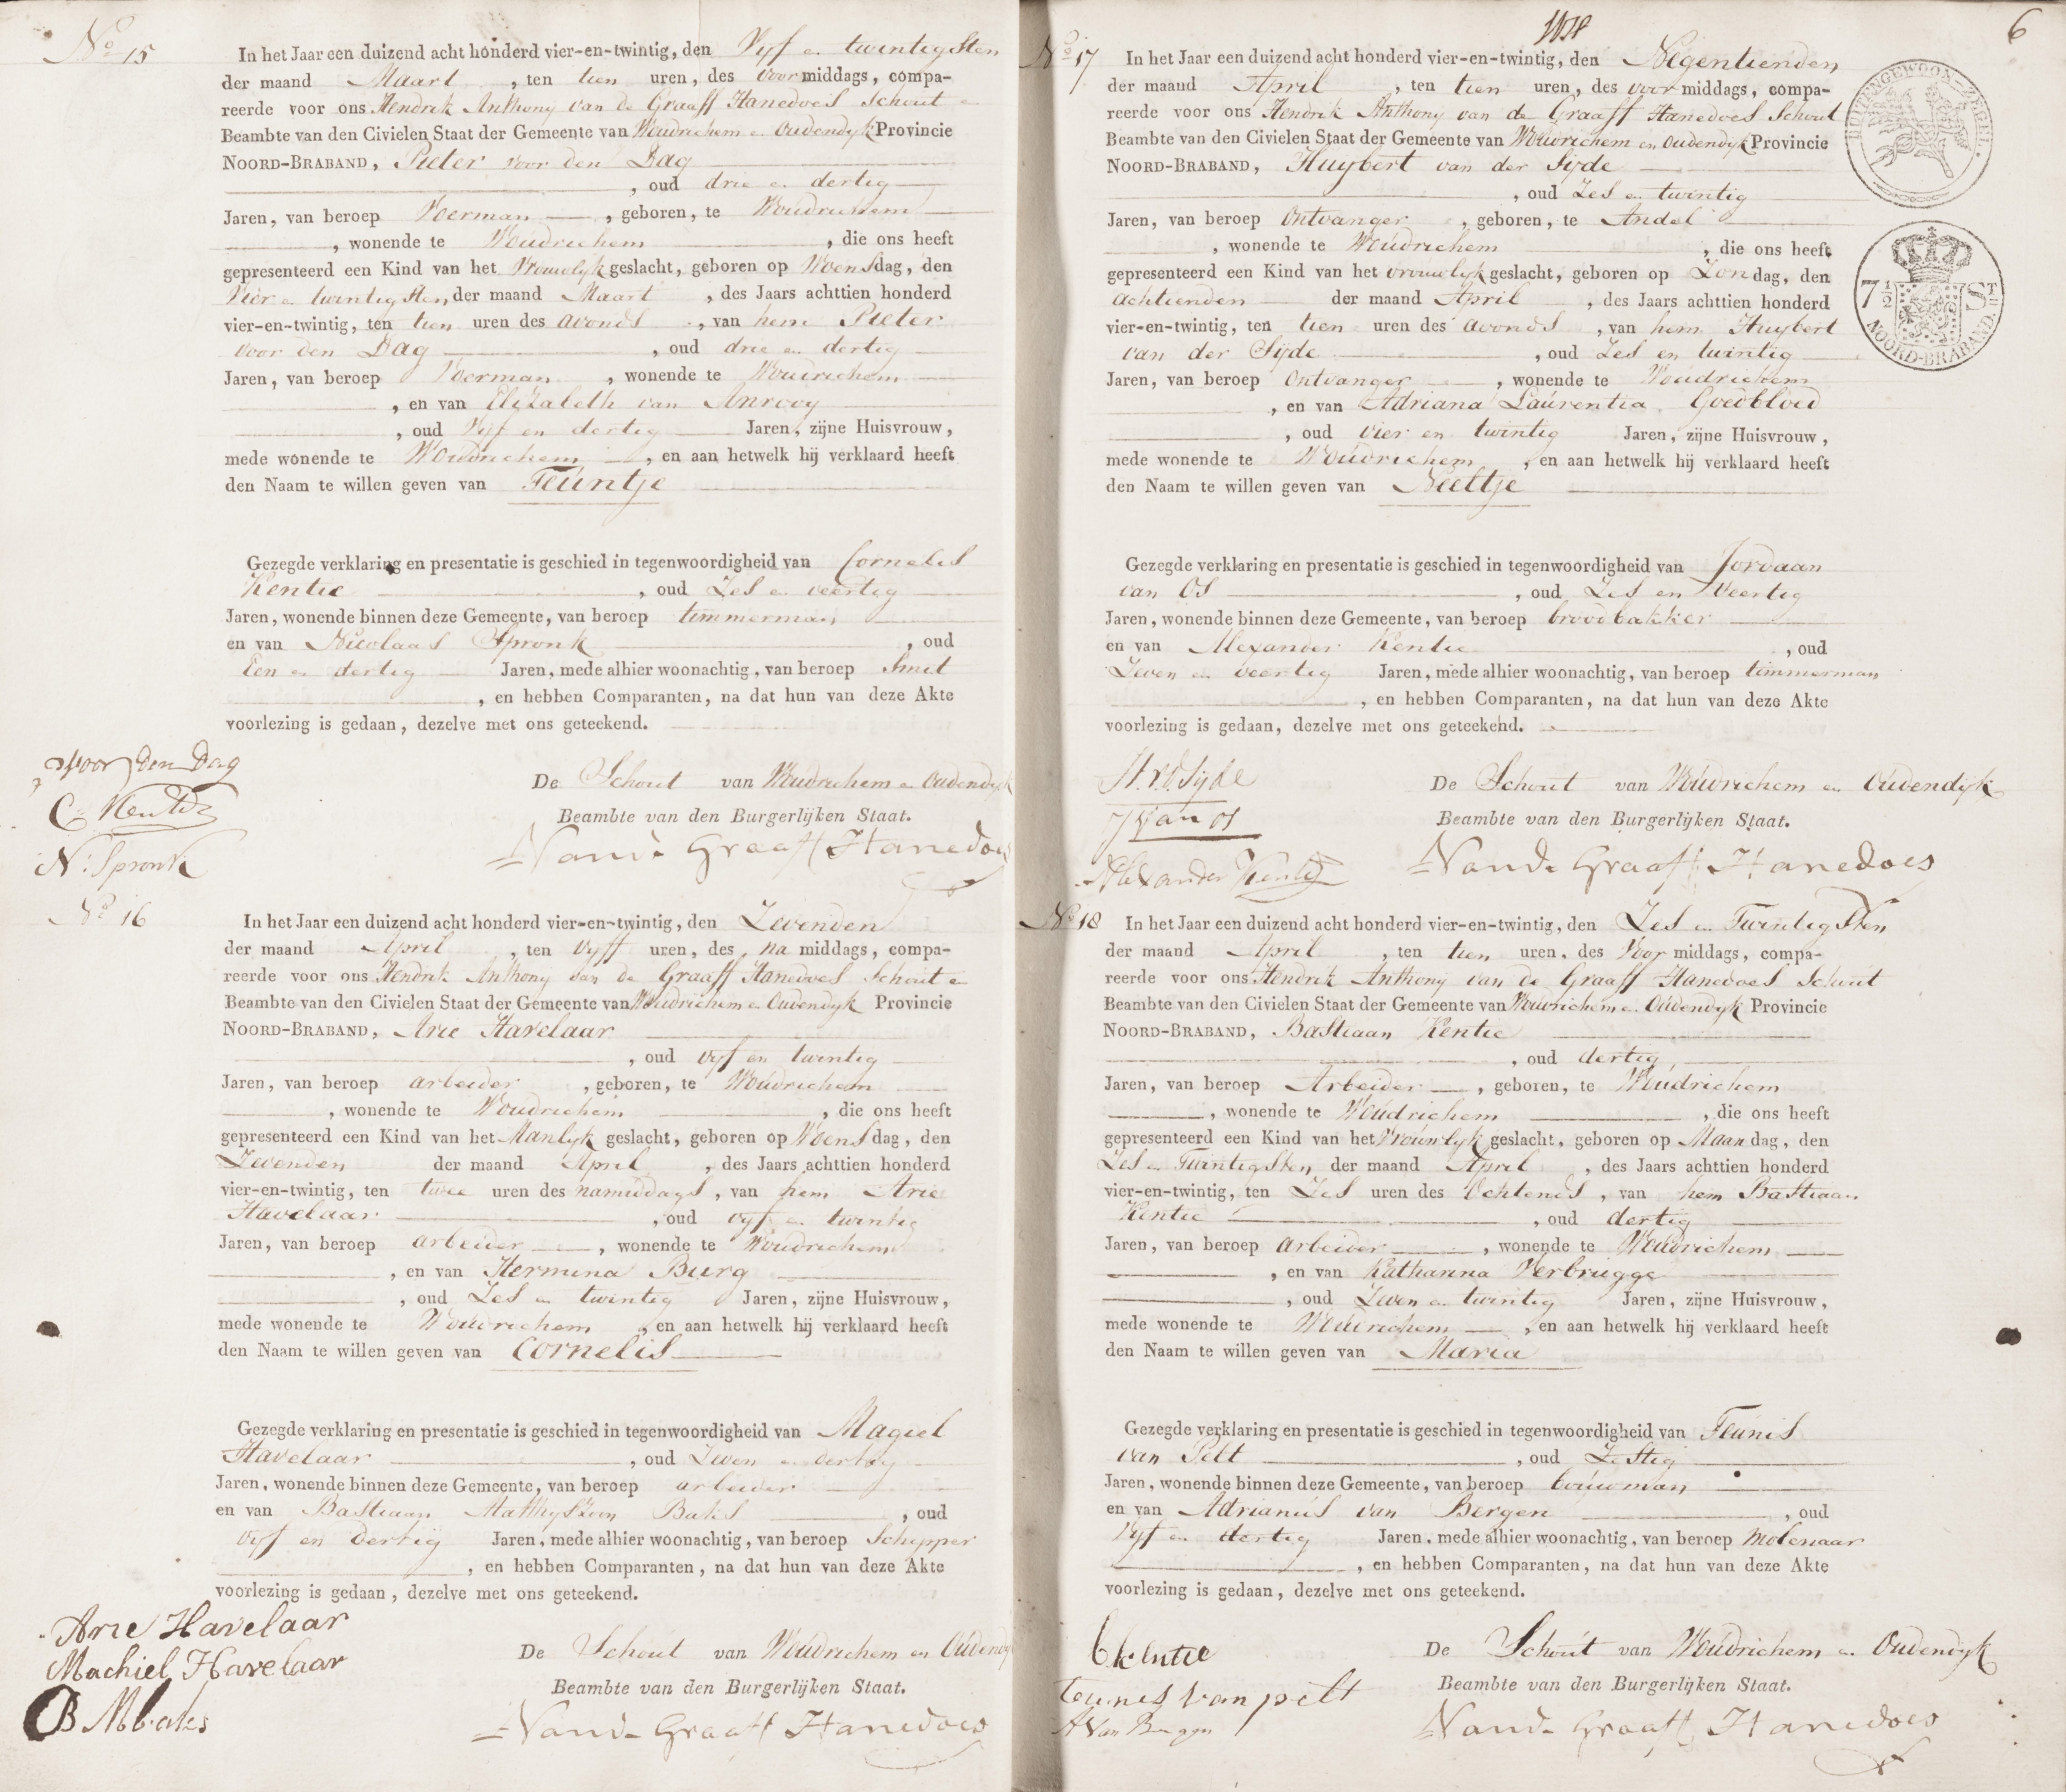 No 15
In het Jaar een duizend acht honderd vier-en-twintig, den Vyf en twintigsten
der maand Maart , ten tien uren, des voor middags, compa-
reerde voor ons Hendrik Anthony van de Graaff Hanedoes Schout en
Beambte van den Civielen Staat der Gemeente van Woudrichem en Oudendyk Provincie
NOORD-BRABAND, Pieter voor den Dag
, oud drie en dertig
Jaren, van beroep Voerman , geboren, te Woudrichem
, wonende te Woudrichem , die ons heeft
gepresenteerd een Kind van het Vrouwelyk geslacht, geboren op Woensdag, den
Vier en twintigsten der maand Maart , des Jaars achttien honderd
vier-en-twintig, ten tien uren des avonds , van hem Pieter
voor den Dag , oud drie en dertig
Jaren, van beroep Voerman , wonende te Woudrichem
, en van Elizabeth van Anrooy
, oud Vyf en dertig Jaren, zijne Huisvrouw,
mede wonende te Woudrichem , en aan hetwelk hij verklaard heeft
den Naam te willen geven van Teuntje
Gezegde verklaring en presentatie is geschied in tegenwoordigheid van Cornelis
Kentie , oud Zes en veertig
Jaren, wonende binnen deze Gemeente, van beroep timmerman
en van Nicolaas Spronk , oud
Een en dertig Jaren, mede alhier woonachtig, van beroep Smit
, en hebben Comparanten, na dat hun van deze Akte
voorlezing is gedaan, dezelve met ons geteekend.
P voor den Dag
C Kentie
N: Spronk
De Schout van Woudrichem en Oudendyk
Beambte van den Burgerlijken Staat.
Van de Graaff Hanedoes
No 16
In het Jaar een duizend acht honderd vier-en-twintig, den Zevenden
der maand April , ten vyff uren, des na middags, compa-
reerde voor ons Hendrik Anthony van de Graaff Hanedoes Schout en
Beambte van den Civielen Staat der Gemeente van Woudrichem en Oudendyk Provincie
NOORD-BRABAND, Arie Havelaar
, oud vyf en twintig
Jaren, van beroep arbeider , geboren, te Woudrichem
, wonende te Woudrichem , die ons heeft
gepresenteerd een Kind van het Manlyk geslacht, geboren op Woensdag, den
Zevenden der maand April , des Jaars achttien honderd
vier-en-twintig, ten twee uren des namiddags, van hem Arie
Havelaar , oud vyf en twintig
Jaren, van beroep arbeider , wonende te Woudrichem
, en van Hermina Burg
, oud Zes en twintig Jaren, zijne Huisvrouw,
mede wonende te Woudrichem , en aan hetwelk hij verklaard heeft
den Naam te willen geven van Cornelis
Gezegde verklaring en presentatie is geschied in tegenwoordigheid van Magiel
Havelaar , oud Zeven en dertig
Jaren, wonende binnen deze Gemeente, van beroep arbeider
en van Bastiaan Matthyszoon Baks , oud
vyf en dertig Jaren, mede alhier woonachtig, van beroep Schipper
, en hebben Comparanten, na dat hun van deze Akte
voorlezing is gedaan, dezelve met ons geteekend.
Arie Havelaar
Machiel Havelaar
B M baks
De Schout van Woudrichem en Oudendyk
Beambte van den Burgerlijken Staat.
Van de Graaff Hanedoes
6
No 17
In het Jaar een duizend acht honderd vier-en-twintig, den Negentienden
der maand April , ten tien uren, des voor middags, compa-
reerde voor ons Hendrik Anthony van de Graaff Hanedoes Schout
Beambte van den Civielen Staat der Gemeente van Woudrichem en Oudendyk Provincie
NOORD-BRABAND, Huybert van der Syde
, oud Zes en twintig
Jaren, van beroep Ontvanger , geboren, te Andel
, wonende te Woudrichem , die ons heeft
gepresenteerd een Kind van het vrouwelyk geslacht, geboren op Zondag, den
achtienden der maand April , des Jaars achttien honderd
vier-en-twintig, ten tien uren des avonds , van hem Huybert
van der Syde , oud Zes en twintig
Jaren, van beroep Ontvanger , wonende te Woudrichem
, en van Adriana Laurentia Goedbloed
, oud vier en twintig Jaren, zijne Huisvrouw,
mede wonende te Woudrichem , en aan hetwelk hij verklaard heeft
den Naam te willen geven van Neeltje
Gezegde verklaring en presentatie is geschied in tegenwoordigheid van Jordaan
van Os , oud Zes en Veertig
Jaren, wonende binnen deze Gemeente, van beroep broodbakker
en van Alexander Kentie , oud
Zeven en veertig Jaren, mede alhier woonachtig, van beroep timmerman
, en hebben Comparanten, na dat hun van deze Akte
voorlezing is gedaan, dezelve met ons geteekend.
H. v.d. Syde
J van os
Alexander Kentie
De Schout van Woudrichem en Oudendijk
Beambte van den Burgerlijken Staat.
Van de Graaff Hanedoes
BUITENGEWOON ZEGEL.
7 1/2 ST
NOORD-BRABAND.
No 18
In het Jaar een duizend acht honderd vier-en-twintig, den Zes en Twintigsten
der maand April , ten tien uren, des Voor middags, compa-
reerde voor ons Hendrik Anthony van de Graaff Hanedoes Schout
Beambte van den Civielen Staat der Gemeente van Woudrichem en Oudendyk Provincie
NOORD-BRABAND, Bastiaan Kentie
, oud dertig
Jaren, van beroep Arbeider , geboren, te Woudrichem
, wonende te Woudrichem , die ons heeft
gepresenteerd een Kind van het Vrouwlyk geslacht, geboren op Maandag, den
Zes en Twintigsten der maand April , des Jaars achttien honderd
vier-en-twintig, ten Zes uren des Ochtends , van hem Bastiaan
Kentie , oud dertig
Jaren, van beroep arbeider , wonende te Woudrichem
, en van Katharina Verbrugge
, oud Zeven en twintig Jaren, zijne Huisvrouw,
mede wonende te Woudrichem , en aan hetwelk hij verklaard heeft
den Naam te willen geven van Maria
Gezegde verklaring en presentatie is geschied in tegenwoordigheid van Teunis
van Pelt , oud Zestig
Jaren, wonende binnen deze Gemeente, van beroep bouwman
en van Adrianus van Bergen , oud
Vyf en dertig Jaren, mede alhier woonachtig, van beroep Molenaar
, en hebben Comparanten, na dat hun van deze Akte
voorlezing is gedaan, dezelve met ons geteekend.
b kentie
teunis van pelt
A Van Bergen
De Schout van Woudrichem en Oudendyk
Beambte van den Burgerlijken Staat.
Van de Graaff Hanedoes